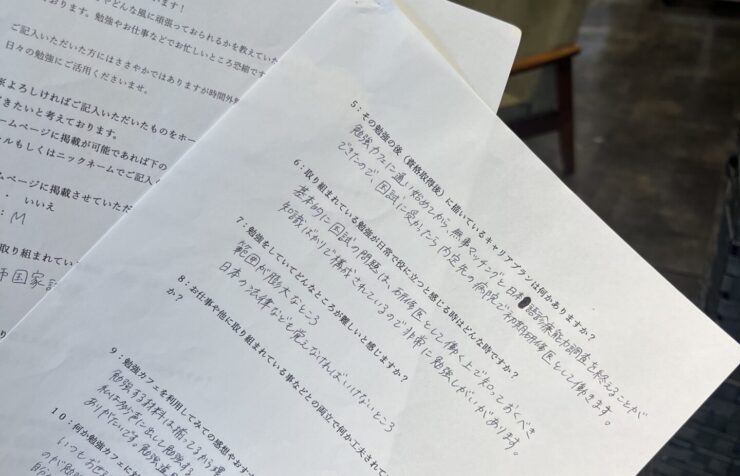 やどんな風に頑張っておられるかを教えていた
おります。勉強やお仕事などでお忙しいところ恐縮です
ご記入いただいた方にはささやかではありますが時間外
日々の勉強にご活用くださいませ。
よろしければご記入いただいたものをホー
きたいと考えております。
ームページに掲載が可能であれば下の
ルもしくはニックネームでご記入
ムページに掲載させていただ
・ いいえ
：M
取り組まれてい
国家
5：その勉強の後（資格取得後）に描いているキャリアプランは何かありますか？
勉強カフェに通い始めてから、無事マッチングと日本語診療能力調査を終えることが
できたので、国試に受かたら、内定先の病院で初期研修医として働きます。
6：取り組まれている勉強が日常で役に立つと感じる時はどんな時ですか？
基本的に国試の問題は、研修医として働く上で知っておくべき
知識ばかりで構成されているので非常に勉強しがいがあります。
7：勉強をしていてどんなところが難しいと感じますか？
範囲が膨大なところ
日本の法律なども覚えなければいけないところ
8：お仕事や他に取り組まれている事などとの両立で何か工夫されて
か？
9：勉強カフェを利用してみての感想やおす
勉強する材料は揃ってるから
私は声に出して勉強する
ありがたいです。勉強
10：何か勉強カフェに
いつもお世